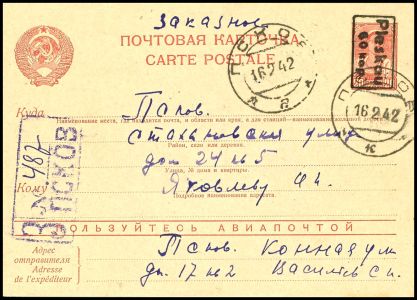 Заказное
ПОЧТОВАЯ КАРТОЧКА
CARTE POSTALE
Pleskau
60 коп.
ПСКОВ
16 2 42
ПСКОВ
16 2 42
Куда
Псков.
Наименование места, где находится почта, и области или края, а для станций—наименование железной дороги
Стахановская улица
Район, село или деревня.
дом 24 № 5
Улица, № дома и квартиры.
Кому
Яковлеву
Подробное наименование адресата.
З
№ 487
ПСКОВ
ПОЛЬЗУЙТЕСЬ АВИАПОЧТОЙ
Адрес
отправителя
Adresse de
l'expéditeur
Псков. Конная ул
д. 17 № 2